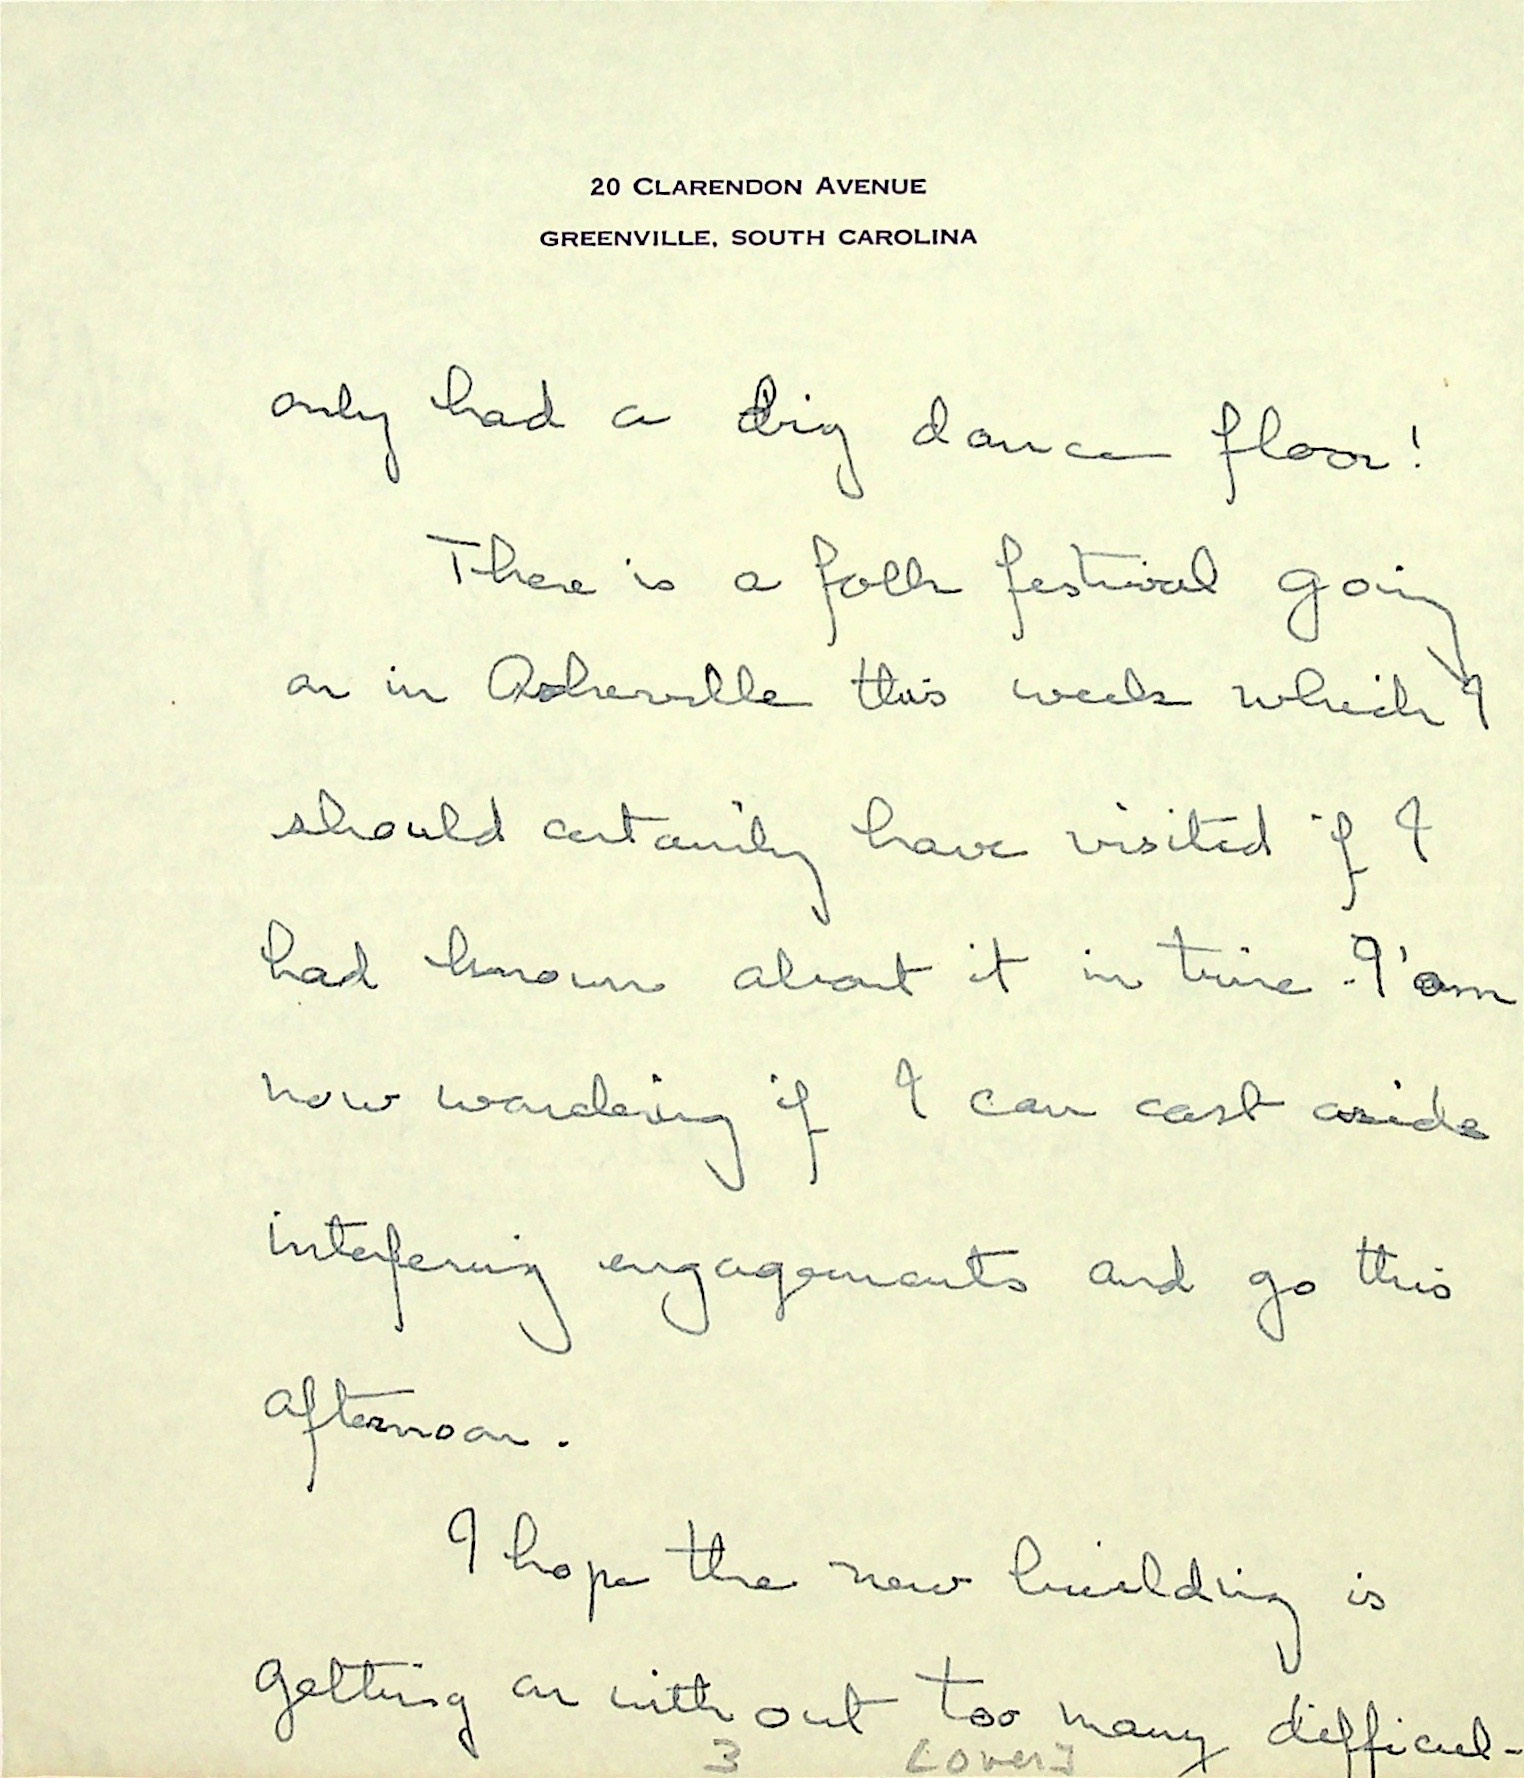 20 CLARENDON AVENUE
GREENVILLE, SOUTH CAROLINA
only had a big dance floor!
There is a folk festival going
on in Asheville this week which I
should certainly have visited if I
had known about it in time. I'am
now wondering if I can cast aside
interfering engagements and go this
afternoon.
I hope the new building is
getting on without too many difficul-
3 [over]